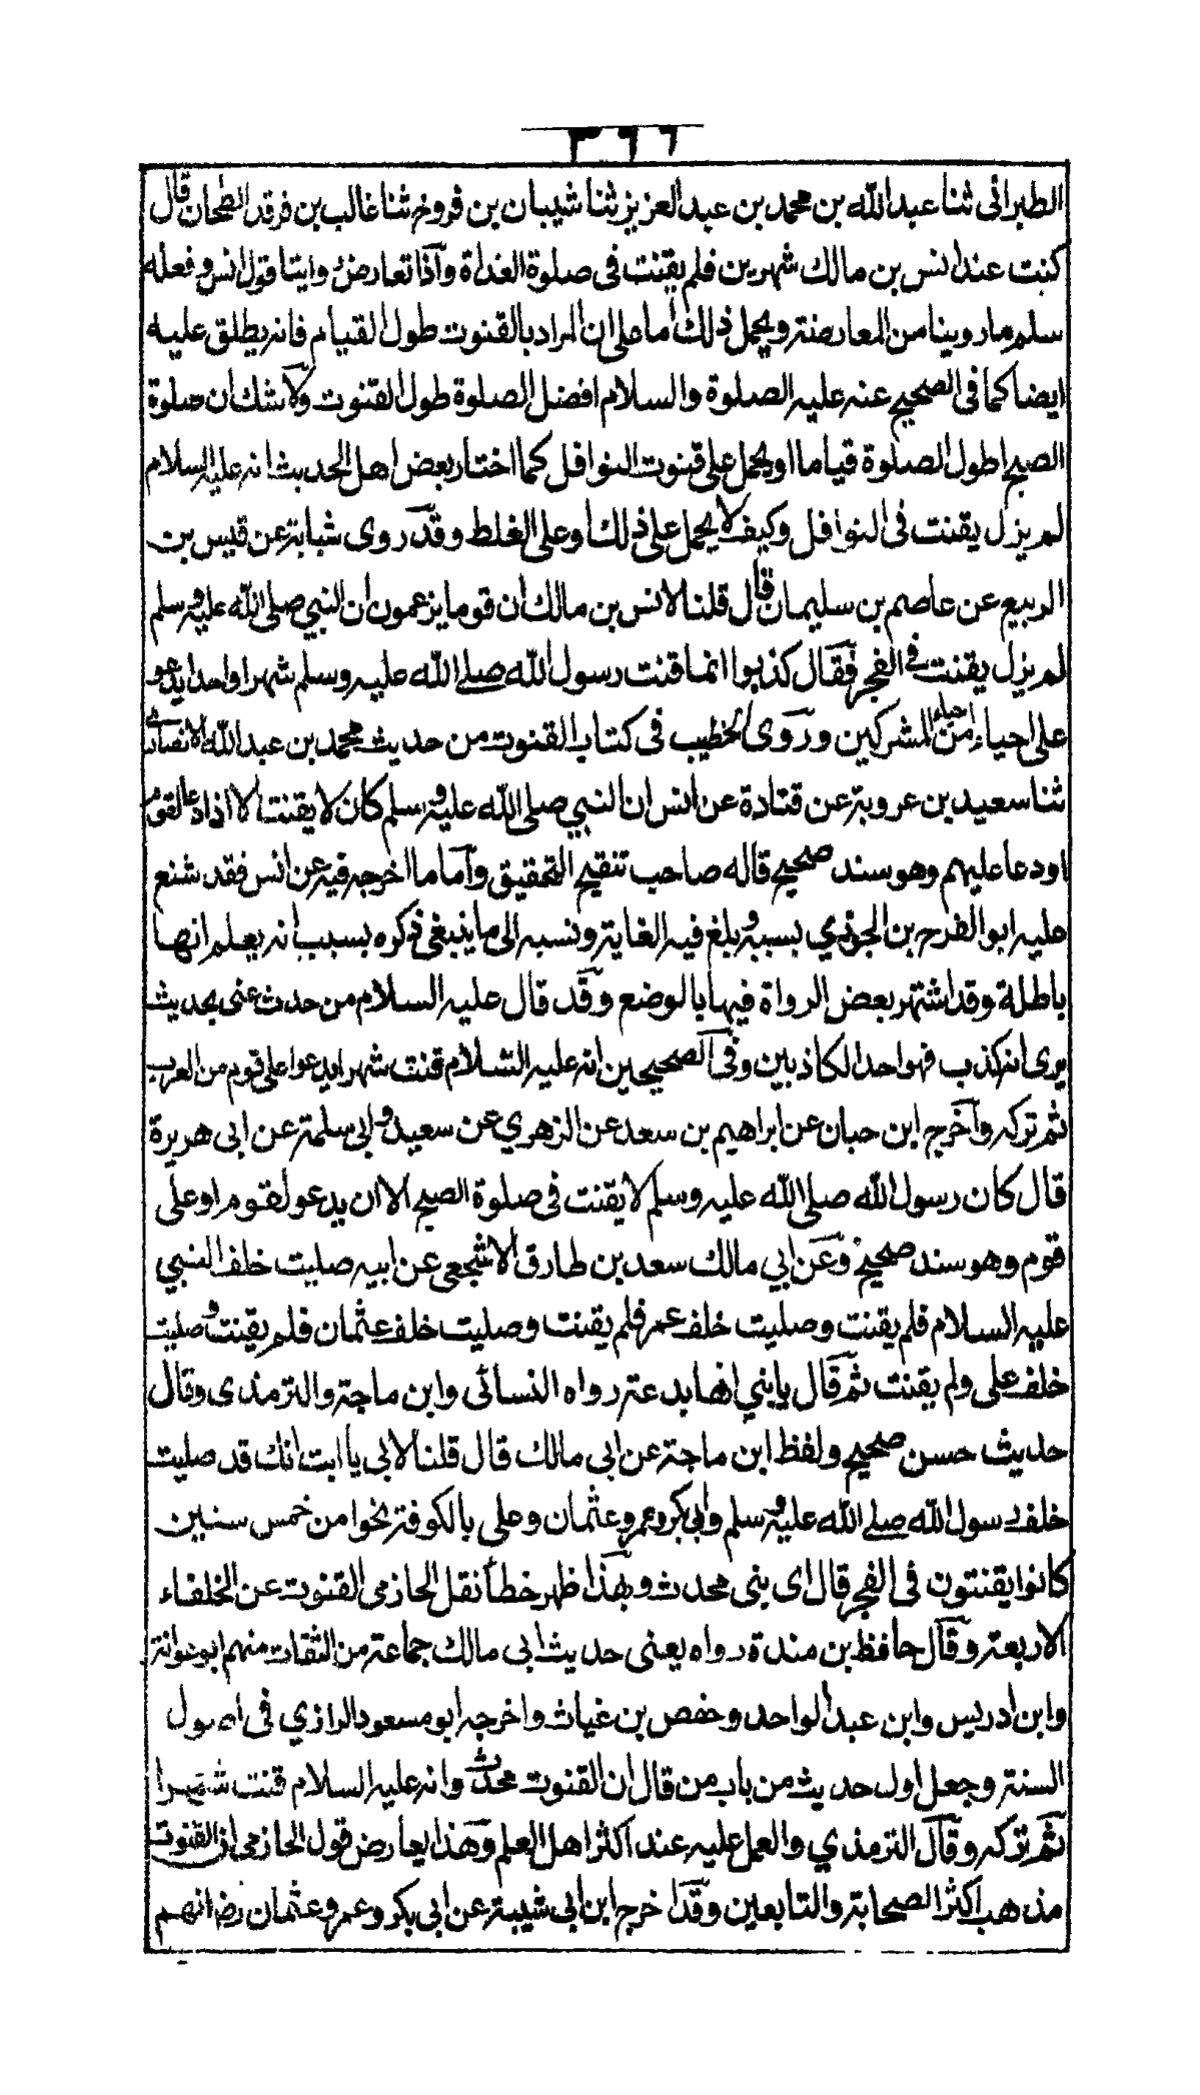 ٣٦٦
الطبرانى ثنا عبدالله بن محمد بن عبدالعزيز ثنا شيبان بن فروخ ثنا غالب بن فرقد الطحان قال
كنت عند انس بن مالك شهرين فلم يقنت فى صلوة الغداة وآذا تعارض وايتا قول انس وفعله
سلم ما روينا من المعارضة ويحمل ذلك أما على ان المراد بالقنوت طول القيام فانه يطلق عليه
ايضا كما فى الصحيح عنه عليه الصلوة والسلام افضل الصلوة طول القنوت ولاشك ان صلوة
الصبح اطول الصلوة قياما او يحمل على قنوت النوافل كما اختار بعض اهل الحديث انه عليه السلام
لم يزل يقنت فى النوافل وكيف لا يحمل على ذلك او على الغلط وقد روى شبابة عن قيس بن
الربيع عن عاصم بن سليمان قال قلنا لانس بن مالك ان قوما يزعمون ان النبي صلى الله عليه وسلم
لم يزل يقنت فى الفجر فقال كذبوا انما قنت رسول الله صلے الله عليه وسلم شهرا واحدا يدعو
على احياء من احياء المشركين وروى الخطيب فى كتاب القنوت من حديث محمد بن عبدالله الانصارى
ثنا سعيد بن عروبة عن قتادة عن انس ان النبي صلى الله عليه وسلم كان لا يقنت الا اذا دعا لقوم
او دعا عليهم وهو سند صحيح قاله صاحب تنقيح التحقيق وآما ما اخرجه فيه عن انس فقد شنع
عليه ابو الفرج بن الجوزي بسببه وبلغ فيه الغاية ونسبه الى ما ينبغى ذكره بسبب انه يعلم انها
باطلة وقد اشتهر بعض الرواة فيها بالوضع وقد قال عليه السلام من حدث عنى بحديث
يرى انه كذب فهو احد الكاذبين وفى الصحيحين انه عليه السلام قنت شهرا يدعوا على قوم من العرب
ثم تركه وآخرج ابن حبان عن ابراهيم بن سعد عن الزهري عن سعيد وابى سلمة عن ابى هريرة
قال كان رسول الله صلى الله عليه وسلم لا يقنت فى صلوة الصبح الا ان يدعو لقوم او على
قوم وهو سند صحيح وعن ابي مالك سعد بن طارق الاشجعى عن ابيه صليت خلف النبي
عليه السلام فلم يقنت وصليت خلف عمر فلم يقنت وصليت خلف عثمان فلم يقنت وصليت
خلف على ولم يقنت ثم قال يابني انها بدعة رواه النسائى وابن ماجة والترمذى وقال
حديث حسن صحيح ولفظ ابن ماجة عن ابى مالك قال قلنا لابى يا ابت انك قد صليت
خلف رسول الله صلے الله عليه وسلم وابى بكر وعمر وعثمان وعلى بالكوفة نحوا من خمس سنين
كانوا يقنتون فى الفجر قال اى بنى محدث وبهذا ظهر خطأ نقل الحازمى القنوت عن الخلفاء
الاربعة وقال حافظ بن مندة رواه يعنى حديث ابى مالك جماعة من الثقات منهم ابو عوانة
وابن ادريس وابن عبدالواحد وحفص بن غياث واخرجه ابو مسعود الرازي فى اصول
السنة وجعل اول حديث من باب من قال ان القنوت محدث وانه عليه السلام قنت شهرا
ثم تركه وقال الترمذي والعمل عليه عند اكثر اهل العلم وهذا يعارض قول الحازمى ان القنوت
مذهب اكثر الصحابة والتابعين وقد اخرج ابن ابى شيبة عن ابى بكر وعمر وعثمان رض انهم